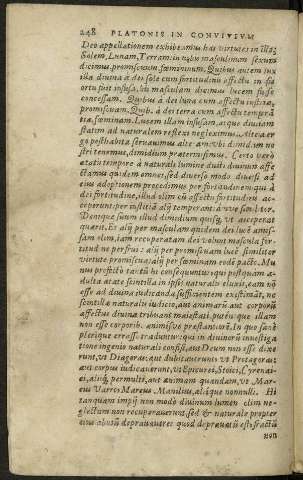 248 PLATONIS IN CONVIVIVM
Deo appellationem exhibeamus has virtutes in illo;
Solem, Lunam, Terram: in nobis masculinum sexum
dicimus, promiscuum, fœmininum. Quibus autem lux
illa diuina à dei sole cum fortitudinis affectu in
fusa, iis masculam dicimus lucem fuisse
concessam. Quibus à dei luna cum affectu iustitiæ,
promiscuam. Quib. à dei terra cum affectu
tiæ, fœminam. Lucem illam infusam, atque diuinam
statim ad naturalem reflexi negleximus. Altera
go posthabita seruauimus alteram
nostri tenemus, dimidium prætermisimus. Certo verò
ætatis tempore à naturali lumine ducti, diuinum affe
ctamus quidem omnes, sed diuerso modo diuersi ad
eius adoptionem procedimus: per fortitudinem qui à
dei fortitudine, illud olim cũ affectu fortitudinis ac
ceperunt: per iustitiã alij: temperantia
Denique suum illud dimidium quisq; vt acceperat
quærit. Et alij per masculam quidem dei lucẽ amis-
sam olim, iam recuperatam dei volunt mascula for
titudine perfrui: alij per promiscuam lucẽ similiter
virtute promiscua: alij per fœminam eodẽ pacto. Mu
nus profectò tantũ hi consequuntur: qui postquam
adulta ætate scintilla in ipsis naturalis eluxit, eam nõ
esse ad diuina iudicanda sufficientem existimãt, ne
scintillæ naturalis iudicio, aut animæ aut corporũ
affectus diuinæ tribuant maiestati: putẽtque illam
non esse corporib. animisve præstantiorẽ. In quo sanè
plerique errasse traduntur: qui in diuinorũ inuestiga
tione ingenio naturali confisi, aut Deum non esse dixe
runt, vt Diagoras: aut dubitauerunt vt Protagoras:
aut corpus iudicauerunt, vt Epicurei, Stoici, Cyrenai-
ci, aliiq; permulti, aut animam quandam, vt Mar-
cus Varro, Marcus Manilius, aliique nonnulli. Hi
tanquam impij non modò diuinum lumen olim ne-
glectum non recuperauerunt, sed & naturale propter
eius abusũ deprauauerunt: quod deprauatũ est, fractũ
non